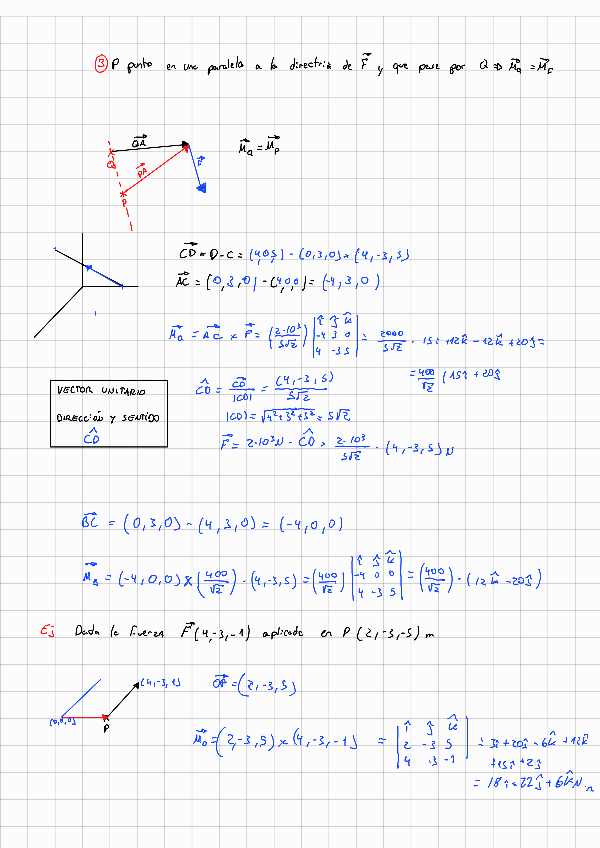 ③ P punto en una paralela a la directriz de F⃗ y que pase por Q ⇒ M⃗Q = M⃗P
QA⃗
PA⃗
F⃗
Q
P
M⃗Q = M⃗P
CD⃗ = D - C = (4,0,5) - (0,3,0) = (4,-3,5)
AC⃗ = (0,3,0) - (4,0,0) = (-4,3,0)
M⃗A = AC⃗ × F⃗ = (2·10³/5√2) |î ĵ k̂; -4 3 0; 4 -3 5| = 2000/5√2 · 15î + 12k̂ - 12k̂ + 20ĵ =
= 400/√2 (15î + 20ĵ
VECTOR UNITARIO
DIRECCIÓN Y SENTIDO
ĈD
ĈD = CD⃗/|CD| = (4,-3,5)/5√2
|CD| = √4²+3²+5² = 5√2
F⃗ = 2·10³N · ĈD = 2·10³/5√2 · (4,-3,5) N
BC⃗ = (0,3,0) - (4,3,0) = (-4,0,0)
M⃗B = (-4,0,0) × (400/√2) · (4,-3,5) = (400/√2) |î ĵ k̂; -4 0 0; 4 -3 5| = (400/√2) · (12k̂ - 20ĵ)
Ej Dada la fuerza F⃗(4,-3,-1) aplicada en P(2,-3,-5) m
(4,-3,1)
(0,0,0)
P
OP⃗ = (2,-3,5)
M⃗O = (2,-3,5) × (4,-3,-1) = |î ĵ k̂; 2 -3 5; 4 -3 -1| = 3î + 20ĵ - 6k̂ + 12k̂
+15î + 2ĵ
= 18î + 22ĵ + 6k̂ N·m